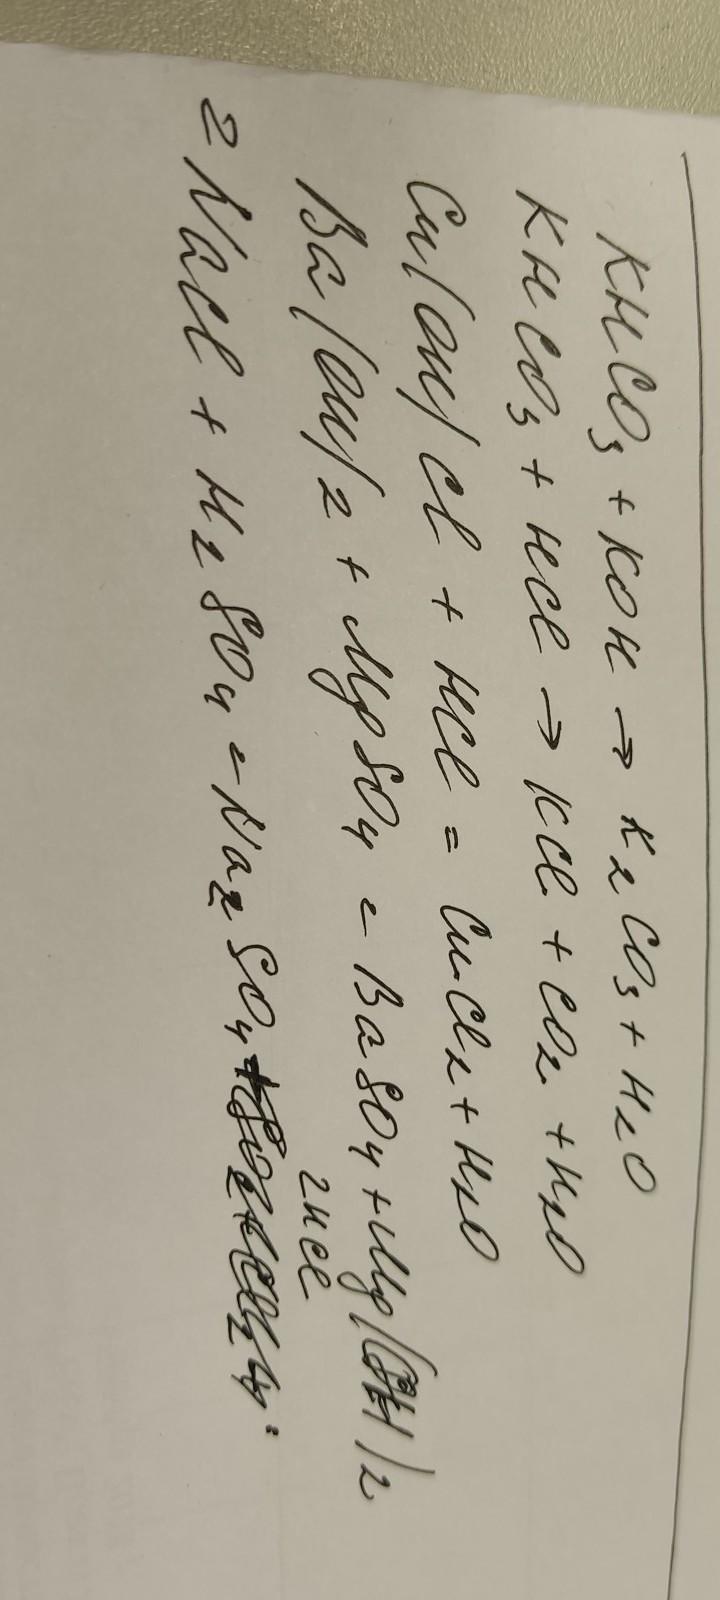 KHCO3 + KOH → K2CO3 + H2O
KHCO3 + HCl → KCl + CO2 + H2O
Cu(OH)Cl + HCl = CuCl2 + H2O
Ba(OH)2 + MgSO4 = BaSO4 + Mg(OH)2
2NaCl + H2SO4 = Na2SO4
2HCl